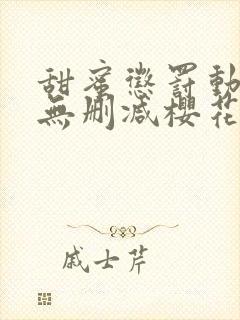 甜蜜懲罰動
無刪減櫻花
戚士芹